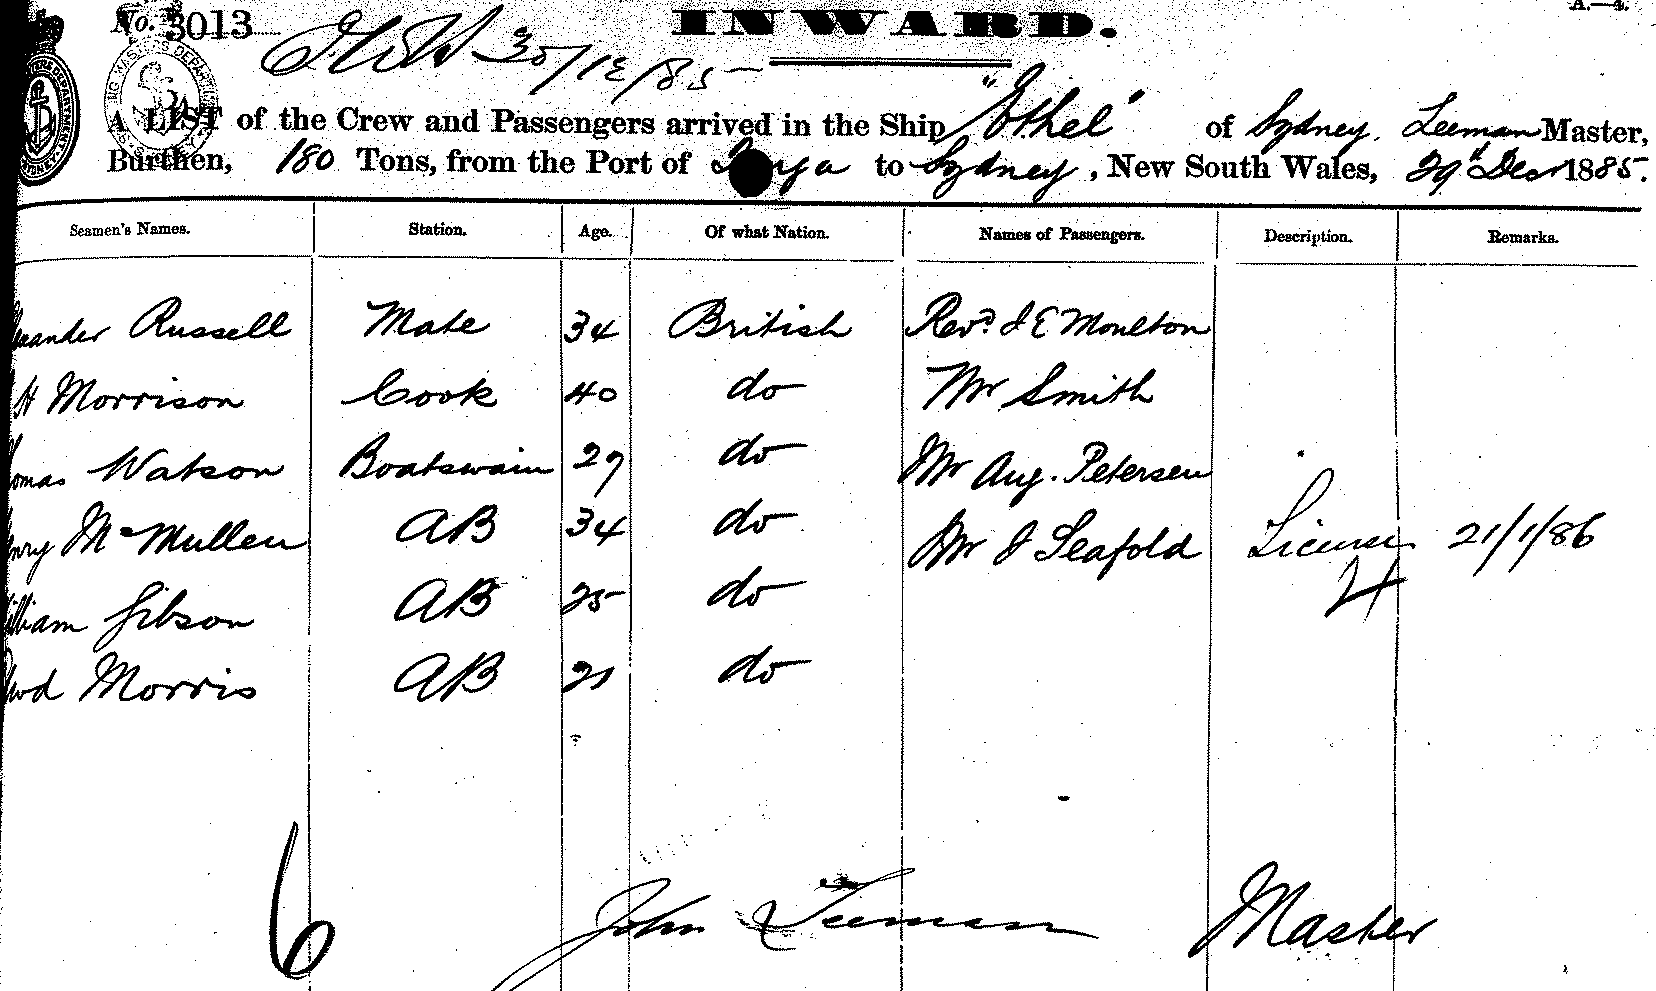 No. 3013
INWARD.
A.—4.
30/12/85
A LIST of the Crew and Passengers arrived in the Ship "Ethel" of Sydney, Leeman Master,
Burthen, 180 Tons, from the Port of to Sydney, New South Wales, 29th Decr 1885.
Seamen's Names. Station. Age. Of what Nation. Names of Passengers. Description. Remarks.
exander Russell Mate 34 British Revd. J E Moulton
H Morrison Cook 40 do Mr Smith
homas Watson Boatswain 27 do Mr Aug. Petersen
enry McMullen AB 34 do Mr J Seafold 21/1/86
illiam Gibson AB 25 do 4
Morris AB 21 do
6
John Leeman Master